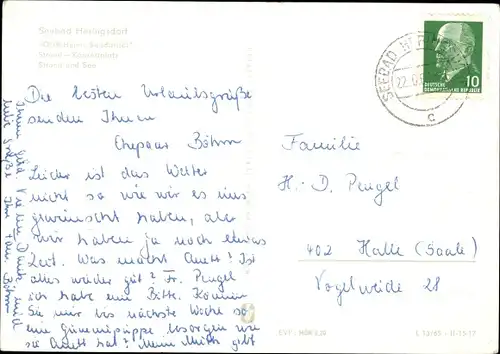 Seebad Heringsdorf
Strand und See
Die besten Urlaubsgrüße
senden Ihnen
Ehepaar Böhm
Leider ist das Wetter
nicht so wie wir es uns
gewünscht haben, aber
wir haben ja noch etwas
Zeit. Was macht Anett? Ist
alles wieder gut? Fr. Pengel
ich habe eine Bitte. Können
Sie mir bis nächste Woche so
eine Gummipuppe besorgen wie
sie Anett hat? Mein Mutti gibt
Ihnen Geld. Vielen Dank, und
liebe Grüße Ihre Frau Böhm
SEEBAD
22.
c
10
DEUTSCHE
DEMOKRATISCHE REPUBLIK
Familie
H.-D. Pengel
402 Halle (Saale)
Vogelweide 28
EVP: MDN 0,20